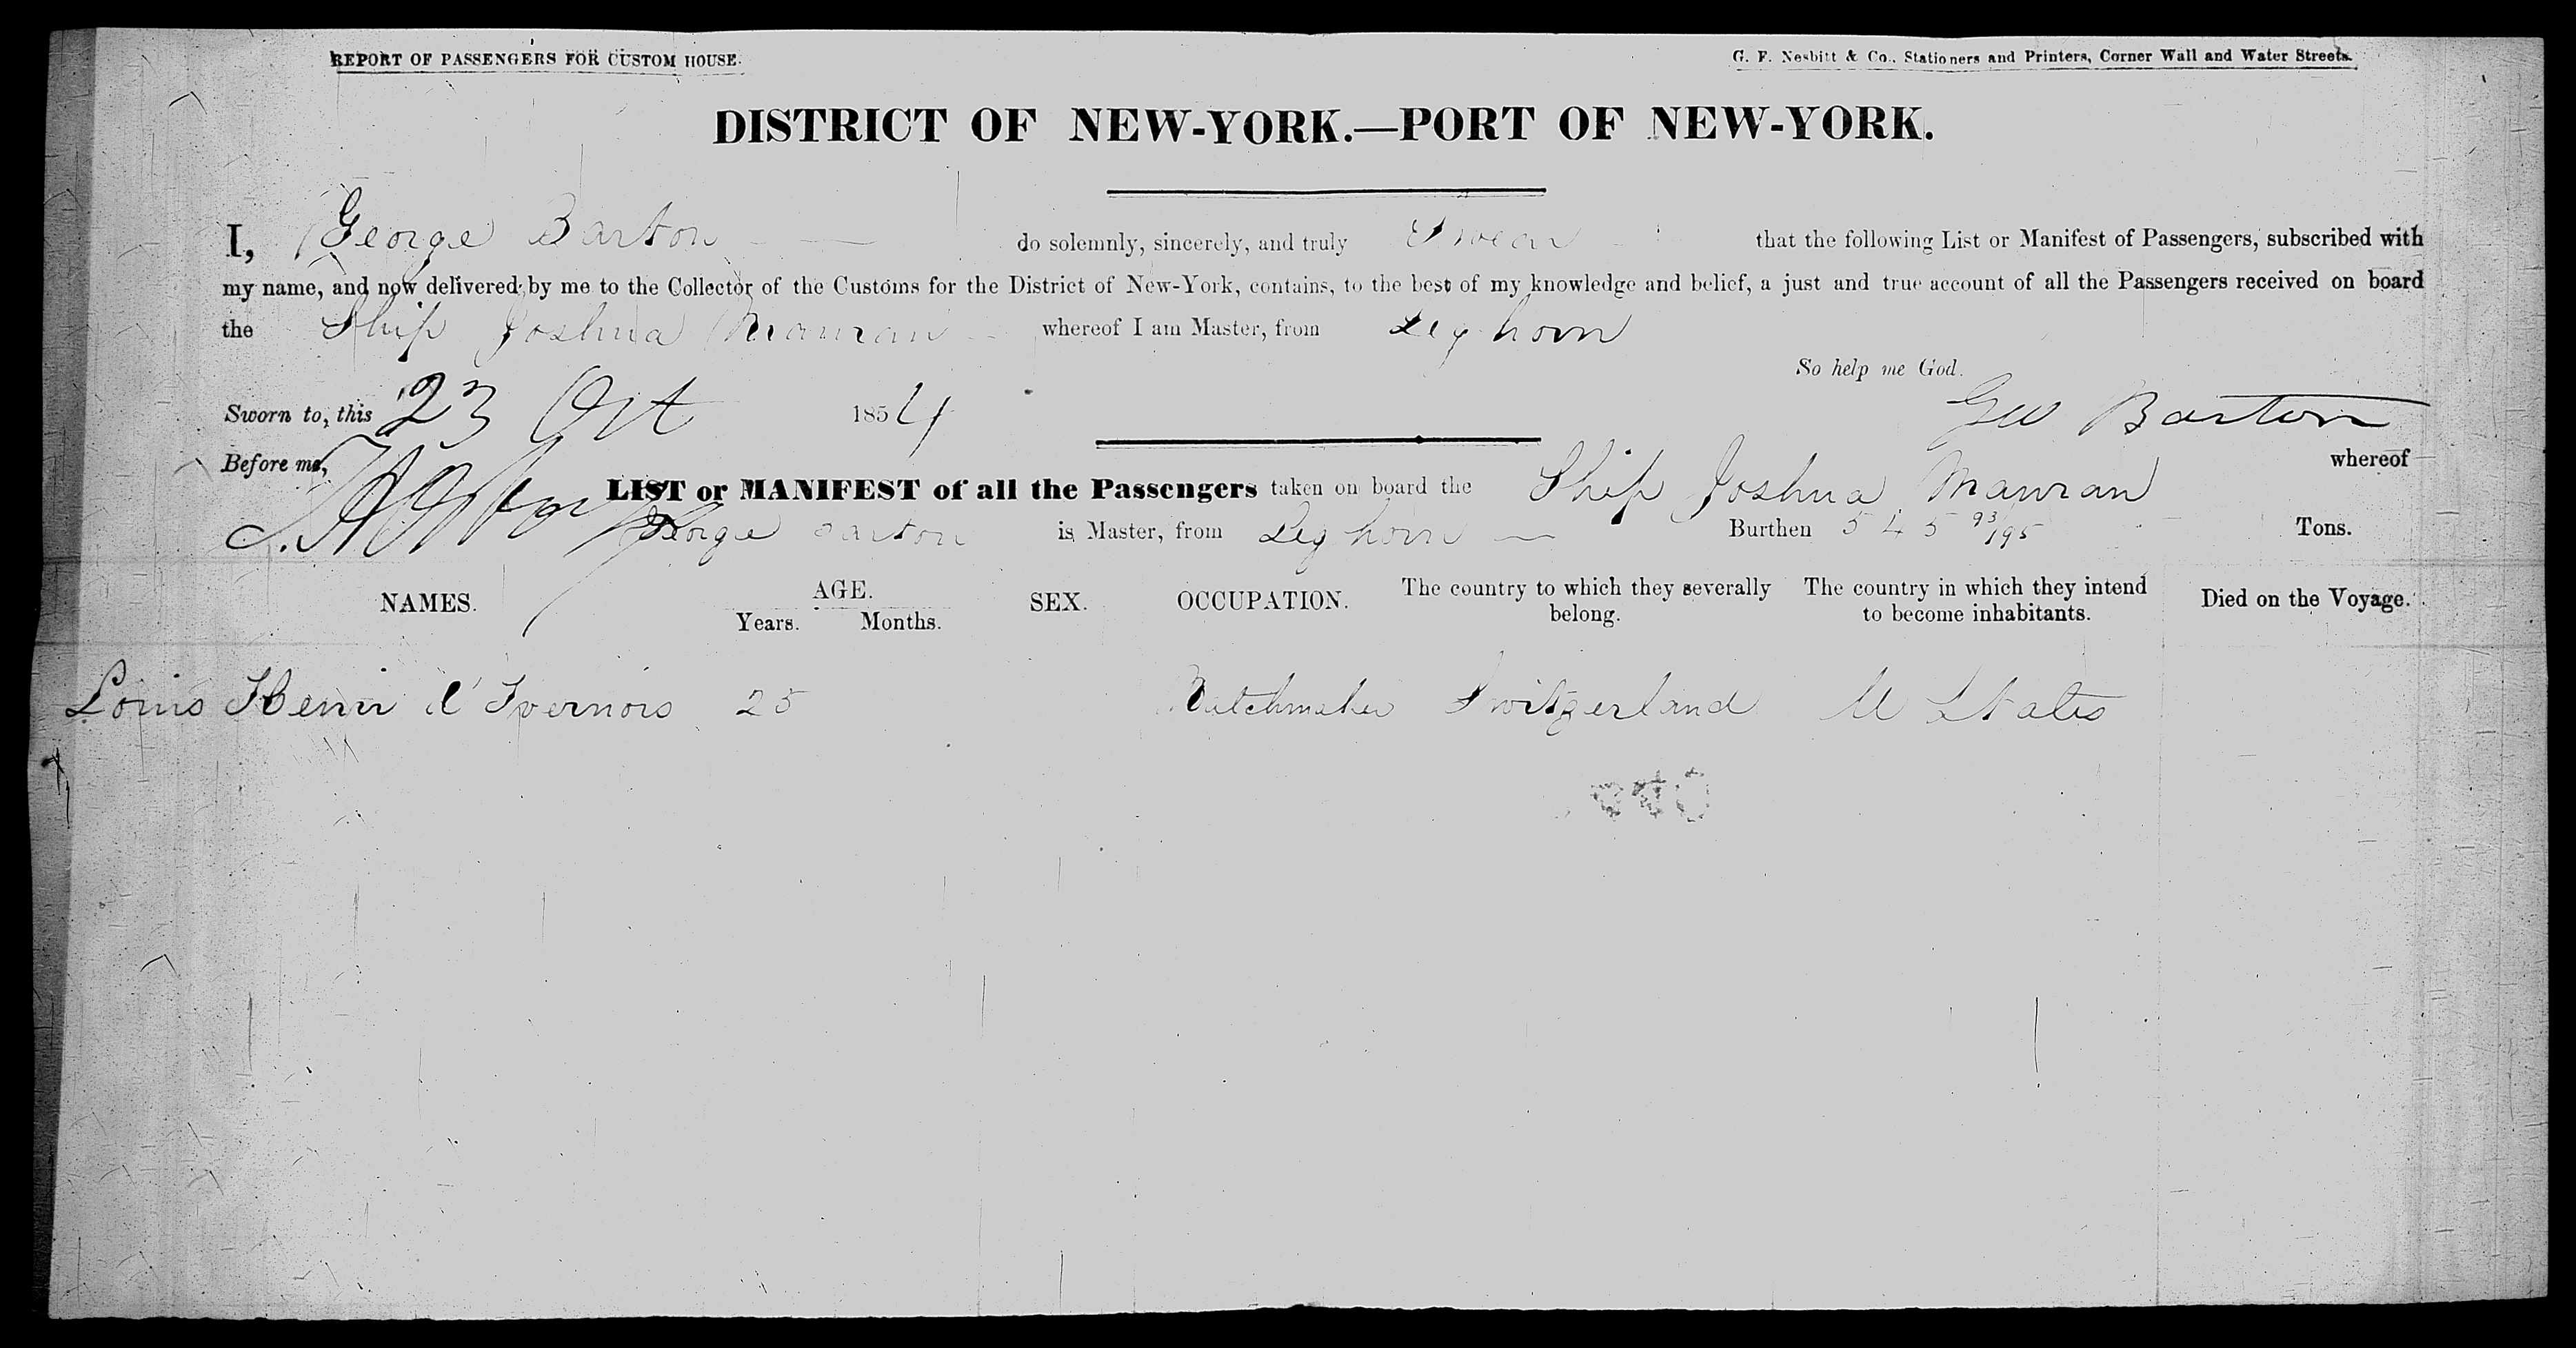 REPORT OF PASSENGERS FOR CUSTOM HOUSE.
G. F. Nesbitt & Co., Stationers and Printers, Corner Wall and Water Streets.
DISTRICT OF NEW-YORK.—PORT OF NEW-YORK.
I, George Barton do solemnly, sincerely, and truly Swear that the following List or Manifest of Passengers, subscribed with
my name, and now delivered by me to the Collector of the Customs for the District of New-York, contains, to the best of my knowledge and belief, a just and true account of all the Passengers received on board
the Ship Joshua Mauran whereof I am Master, from Leghorn
So help me God.
Sworn to, this 23 Oct 1854 Geo Barton
Before me,
LIST or MANIFEST of all the Passengers taken on board the Ship Joshua Mauran whereof
George Barton is Master, from Leg horn — Burthen 545 93/95 Tons.
NAMES. AGE. SEX. OCCUPATION. The country to which they severally belong. The country in which they intend to become inhabitants. Died on the Voyage.
Years. Months.
Louis Henri d'Ivernois 25 Watchmaker Switzerland U States